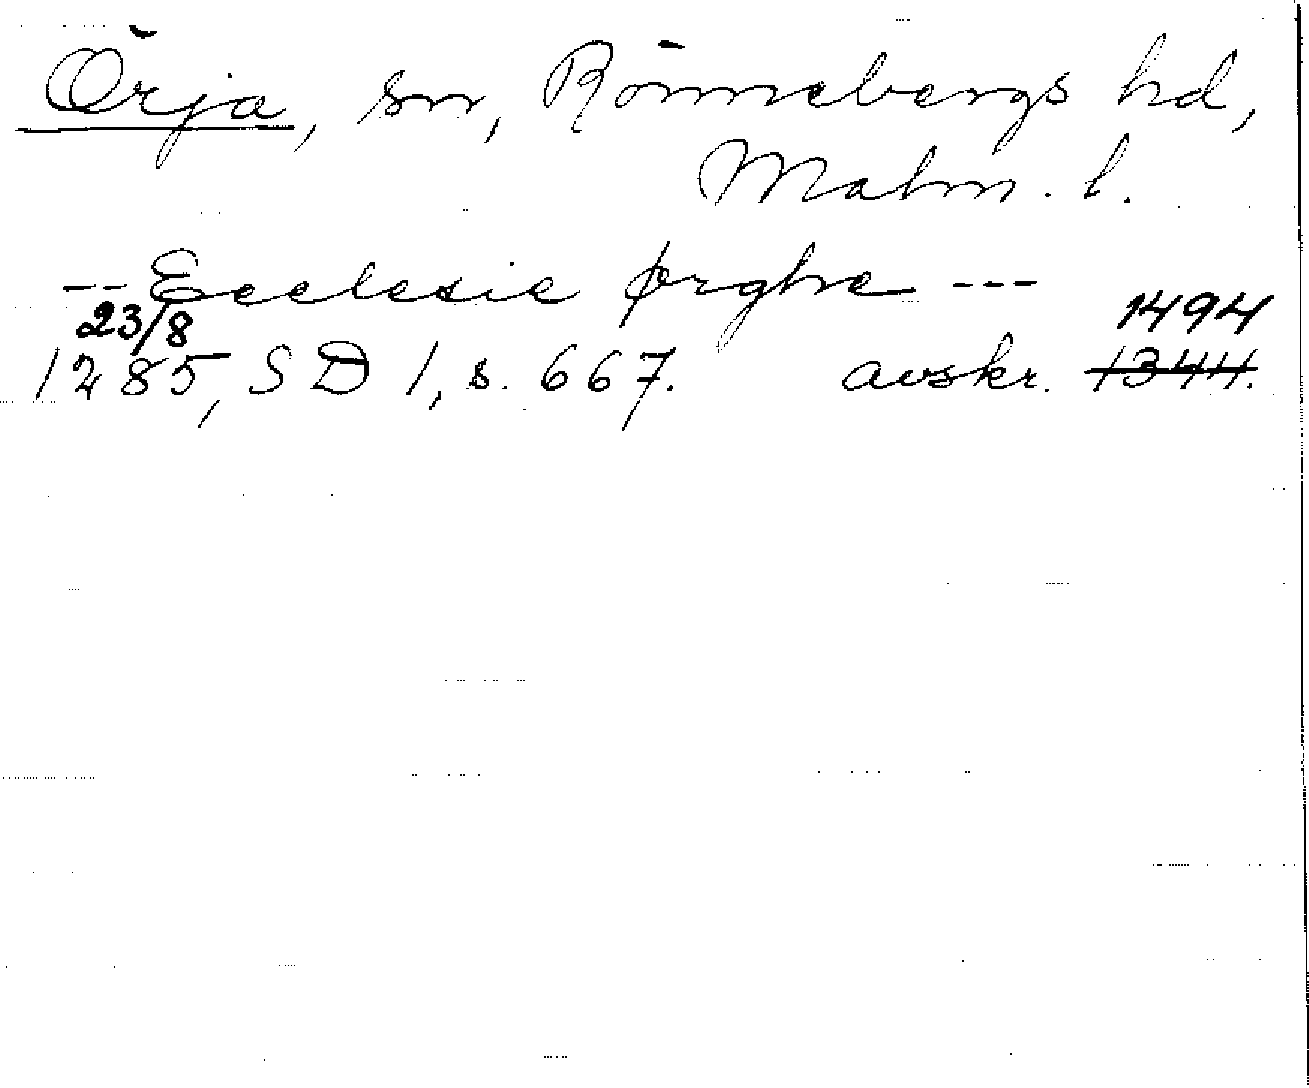 Örja, sn, Rönnebergs hd,
Malm. l.
-- Ecclesie ørghæ ---
23/8 1494
1285, SD 1, s. 667. avskr. 1344.